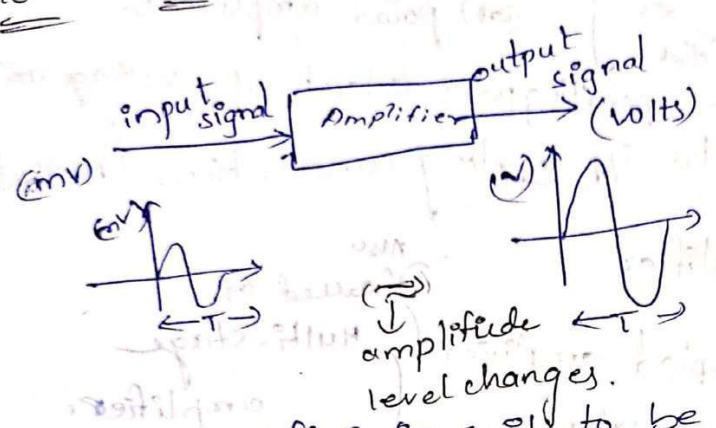 input signal
Amplifier
output signal
(volts)
(mv)
(mv)
(v)
T
T
amplitude
level changes.
to be